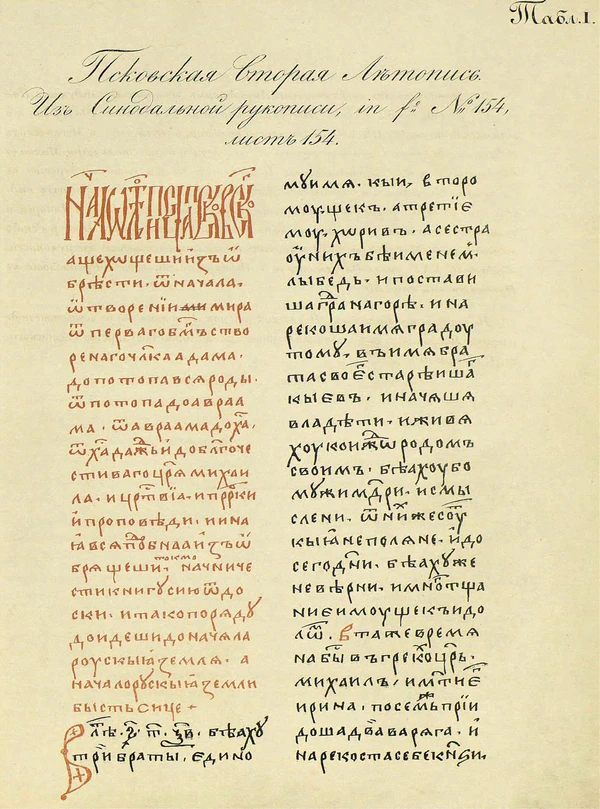 Табл.1.
Псковская Вторая Лѣтопись.
Изъ Синодальной рукописи, in fº. № 154,
листъ 154.
аще хощеши и҆зъѡ҆
брѣсти · ѿ начала,
ѿ творенїи мира
ѿ перваго бж҃ьство
рена го чл҃ка адама ·
до потопа вся роды ·
ѿ потопа до авраа
ма · ѿ авраама до х҃а,
ѿ х҃а даже и҆ до бл҃гоче
стиваго цр҃я михаи
ла · и цр҃твїа · и прⷪ҇рки
и҆ проповѣди · и и на
ꙗ вся пѡⷣбнаа и҆зъѡ҆
брящеши · токмо начниче
сти книгу сию ѿ до
ски · и тако поряду
доидеши до начяла
роускыꙗ земля · а
начало рускыꙗ земли
бысть сице +
В лѣⷮ · ҂ѕ҃ · т҃ · ѯ҃в · бѣаху
три҆ браты, еди҆но
моу имя · кыи, второ
моу щекъ · а третїе
моу · хѡривъ · а сестра
оу҆ нихъ бѣ именемⸯ
лыбедь · и постави
ша гра на горѣ · и на
рекоша имя градоу
томоу, въ имя бра
та своеⷢ҇ старѣишаⷢ҇
кыевъ · и начяшя
владѣти · и҆ живя
хоу коиⷤдѡ родомъ
своимъ · бѣахоу бо
мужи мⷣри · и смы
слени · ѿ ниⷯ же соуⷮ
кыꙗне поляне · и҆ до
сего дн҃и · бѣаху же
не вѣрни · и мноⷢ тща
ние имоуще къ идо
лѡⷨ · В та же времѧ
на бы въ грекоⷯ црь
михаилъ, и мт҃и еⷢ
ирина · по семъ прїи
доша два варяга · и҆
нарекостася кнѕи ·